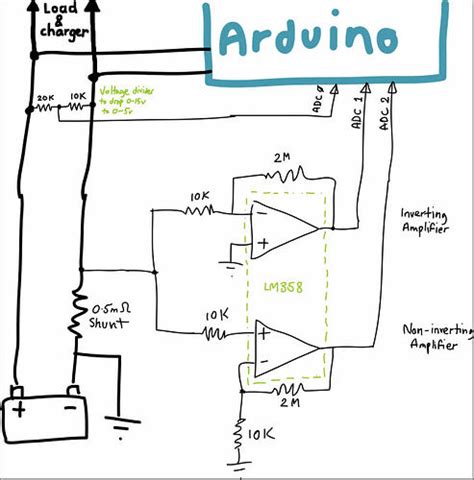 Load
&
charger
Arduino
20K
10K
Voltage divider
to drop 0-15v
to 0-5v
ADC 0
ADC 1
ADC 2
2M
10K
-
+
Inverting
Amplifier
LM858
0.5mΩ
Shunt
10K
+
-
Non-inverting
Amplifier
2M
10K
+
-